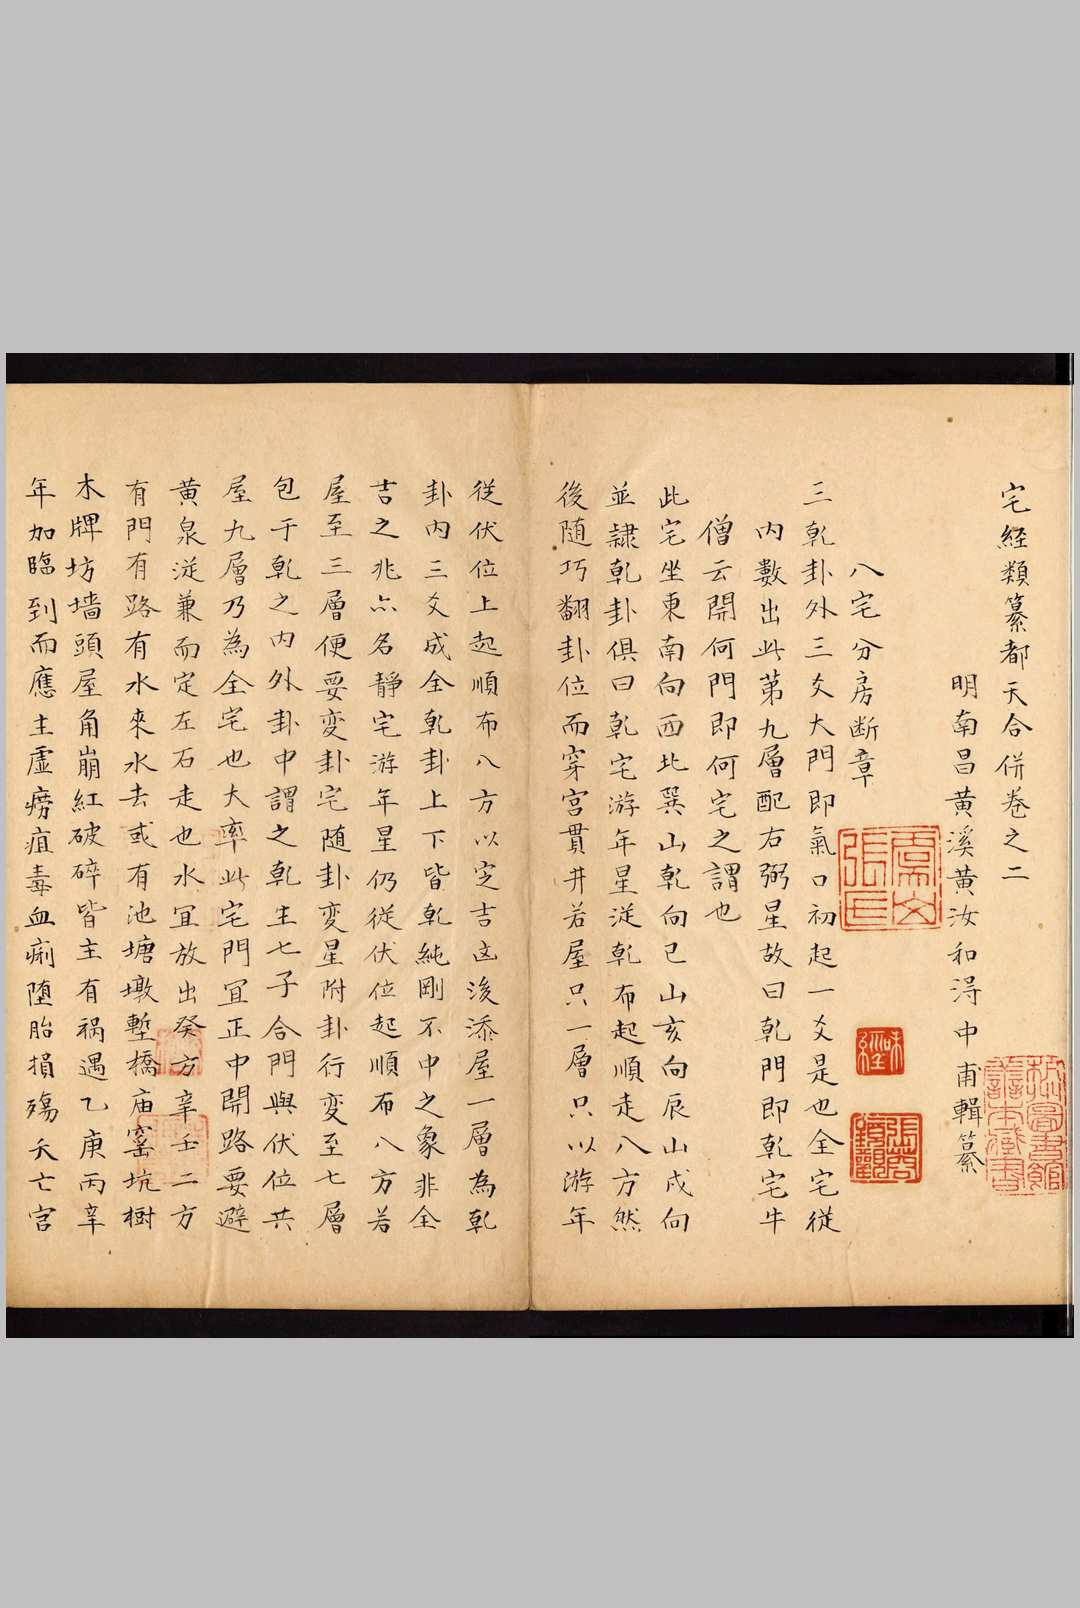 宅經類纂都天合併卷之二
明南昌黃溪黃汝和淂中甫輯纂
八宅分房断章
三乾卦外三爻大門即氣口初起一爻是也全宅從
内數出此第九層配右弼星故曰乾門即乾宅牛
僧云開何門即何宅之謂也
此宅坐東南向西北巽山乾向巳山亥向辰山戌向
並隷乾卦俱曰乾宅游年星從乾布起順走八方然
後随巧翻卦位而穿宮貫井若屋只一層只以游年
從伏位上起順布八方以定吉凶後添屋一層為乾
卦内三爻成全乾卦上下皆乾純剛不中之象非全
吉之兆亦名靜宅游年星仍從伏位起順布八方若
屋至三層便要変卦宅随卦変星附卦行変至七層
包于乾之内外卦中謂之乾生七子合門與伏位共
屋九層乃為全宅也大率此宅門宜正中開路要避
黃泉從兼而定左右走也水宜放出癸方辛壬二方
有門有路有水來水去或有池塘墩塹橋庙窑坑樹
木牌坊墻頭屋角崩紅破碎皆主有祸遇乙庚丙辛
年加臨到而應主虛癆疽毒血痢堕胎損殤夭亡官